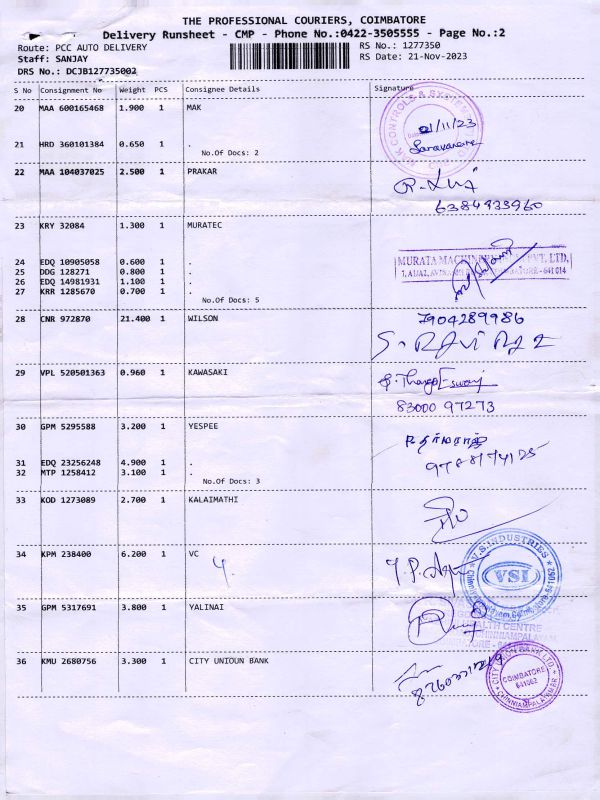 THE PROFESSIONAL COURIERS, COIMBATORE
Delivery Runsheet - CMP - Phone No.:0422-3505555 - Page No.:2
Route: PCC AUTO DELIVERY
RS No.: 1277350
Staff: SANJAY
RS Date: 21-Nov-2023
DRS No.: DCJB127735002
S No Consignment No Weight PCS Consignee Details Signature
20 MAA 600165468 1.900 1 MAK
21/11/23
21 HRD 360101384 0.650 1 .
Saravanan
No.Of Docs: 2
22 MAA 104037025 2.500 1 PRAKAR
6384933960
23 KRY 32084 1.300 1 MURATEC
24 EDQ 10905058 0.600 1 .
MURATA MACHINERY PVT. LTD.
25 DDG 128271 0.800 1 .
641 014
26 EDQ 14981931 1.100 1 .
27 KRR 1285670 0.700 1 .
No.Of Docs: 5
28 CNR 972870 21.400 1 WILSON
7904289986
29 VPL 520501363 0.960 1 KAWASAKI
83000 97273
30 GPM 5295588 3.200 1 YESPEE
31 EDQ 23256248 4.900 1 .
32 MTP 1258412 3.100 1 .
No.Of Docs: 3
33 KOD 1273089 2.700 1 KALAIMATHI
34 KPM 238400 6.200 1 VC
V.S. INDUSTRIES
VSI
35 GPM 5317691 3.800 1 YALINAI
HEALTH CENTRE
CHINNIAMPALAYAM
36 KMU 2680756 3.300 1 CITY UNIOUN BANK
CITY UNION BANK LTD.
COIMBATORE
641062
CHINNIAMPALAYAM BR